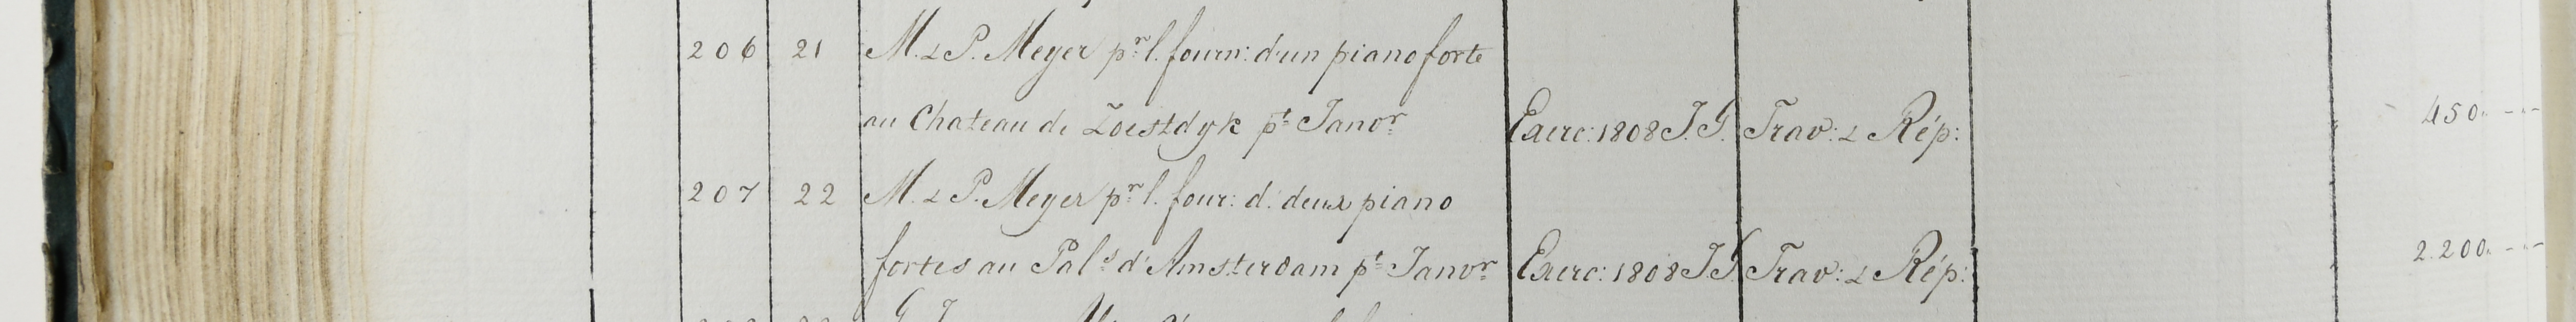 206 21 M. & P. Meyer pr. l. fourn: d'un piano forte
au Chateau de Zoestdyk pt. Janvr. Exerc: 1808 J. G. Trav: & Rép: 450.--
207 22 M. & P. Meyer pr. l. four: d. deux piano
fortes au Pals. d'Amsterdam pt. Janvr. Exerc: 1808 J G. Trav: & Rép: 2.200.--